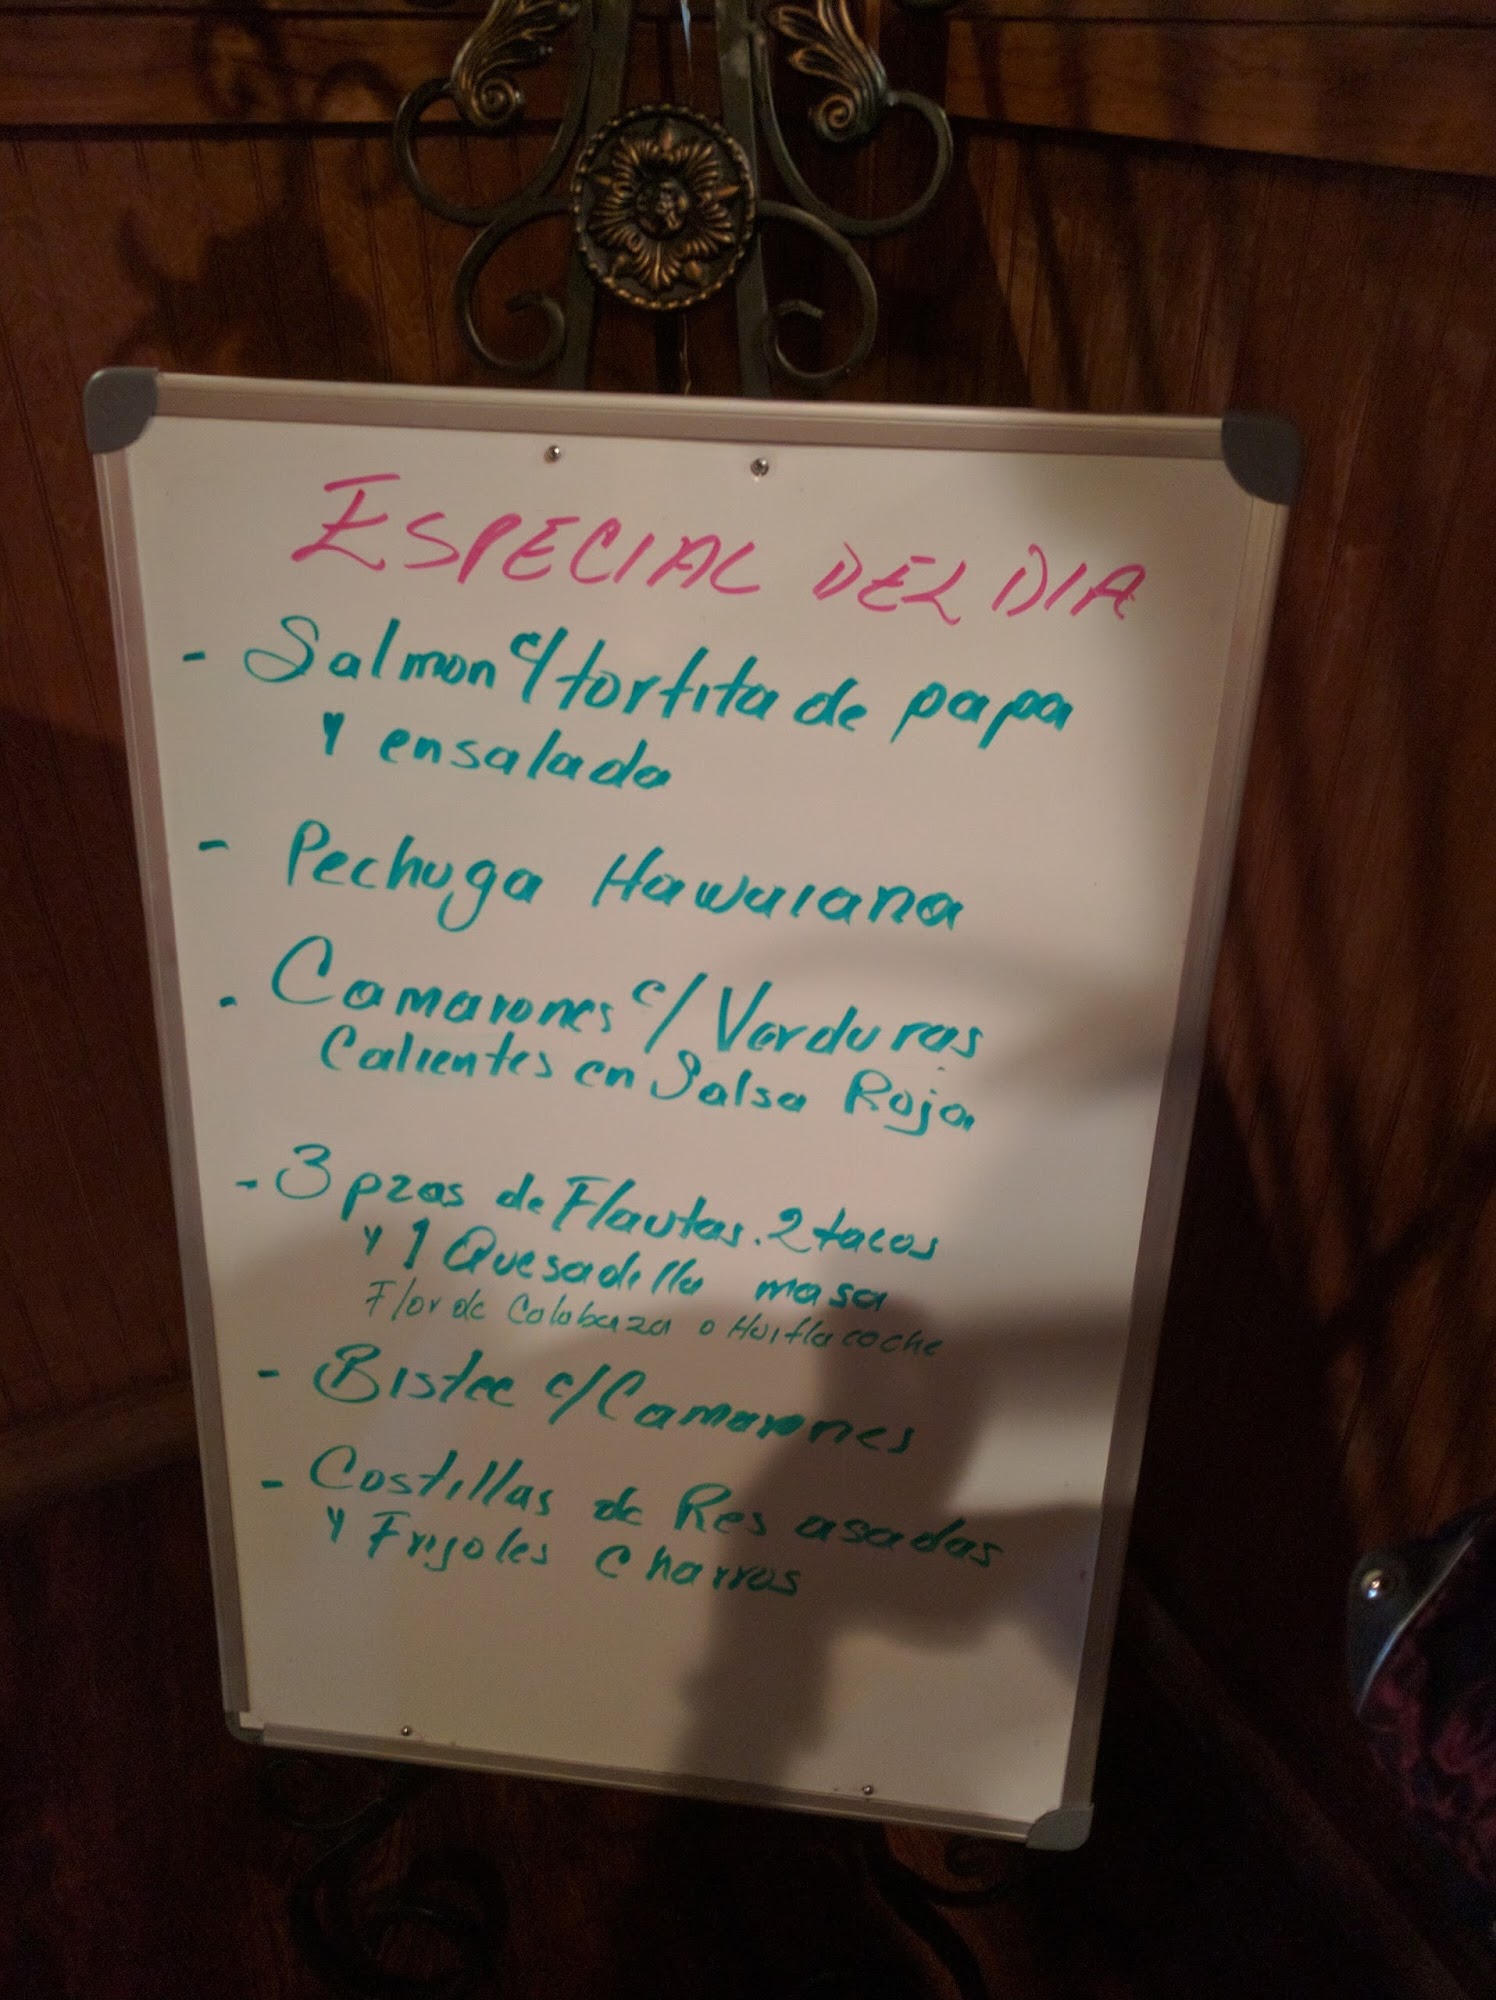 ESPECIAL DEL DIA
- Salmon c/tortita de papa
y ensalada
- Pechuga Hawaiana
- Camarones c/Verduras
Calientes en Salsa Roja
- 3 pzas de Flautas. 2 tacos
y 1 Quesadilla masa
Flor de Calabaza o Huitlacoche
- Bistec c/Camarones
- Costillas de Res asadas
y Frijoles Charros